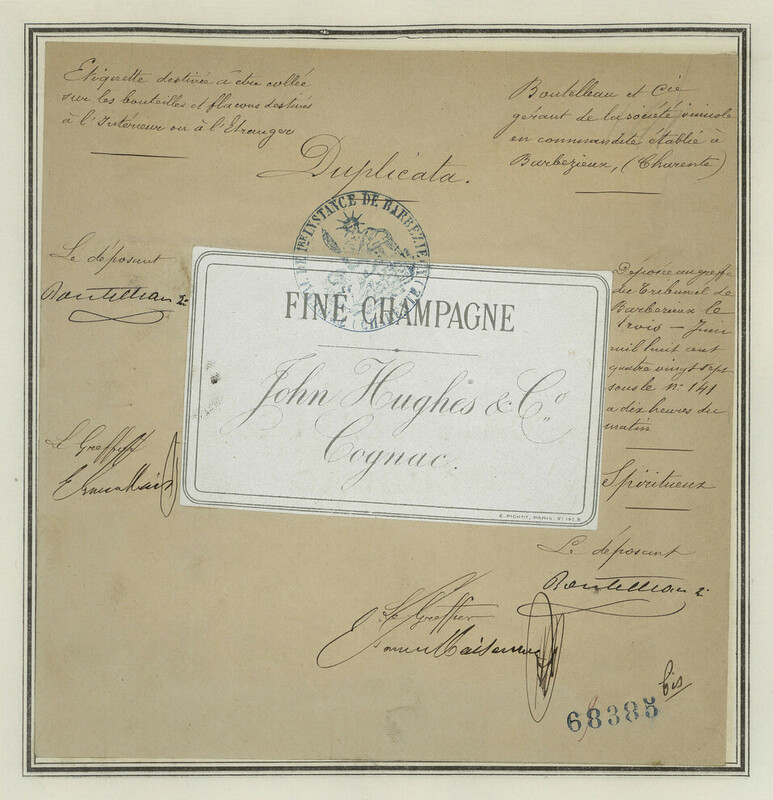 Etiquette destinée à être collée
sur les bouteilles et flacons destinés
à l'Intérieur ou à l'Etranger
Boutelleau et Cie
gérant de la société vinicole
en commandite établie à
Barbezieux, (Charente)
Duplicata.
Le déposant
Boutelleau
INSTANCE DE BARBEZIE
FINE CHAMPAGNE
John Hughes & Co
Cognac.
E. PICHOT, PARIS.
Déposé au greffe
du Tribunal de
Barbezieux le
Trois - Juin
mil huit cent
quatre vingt sept
sous le No 141
à dix heures du
matin
Le Greffier
Spiritueux
Le déposant
Boutelleau
Le Greffier
bis
68385